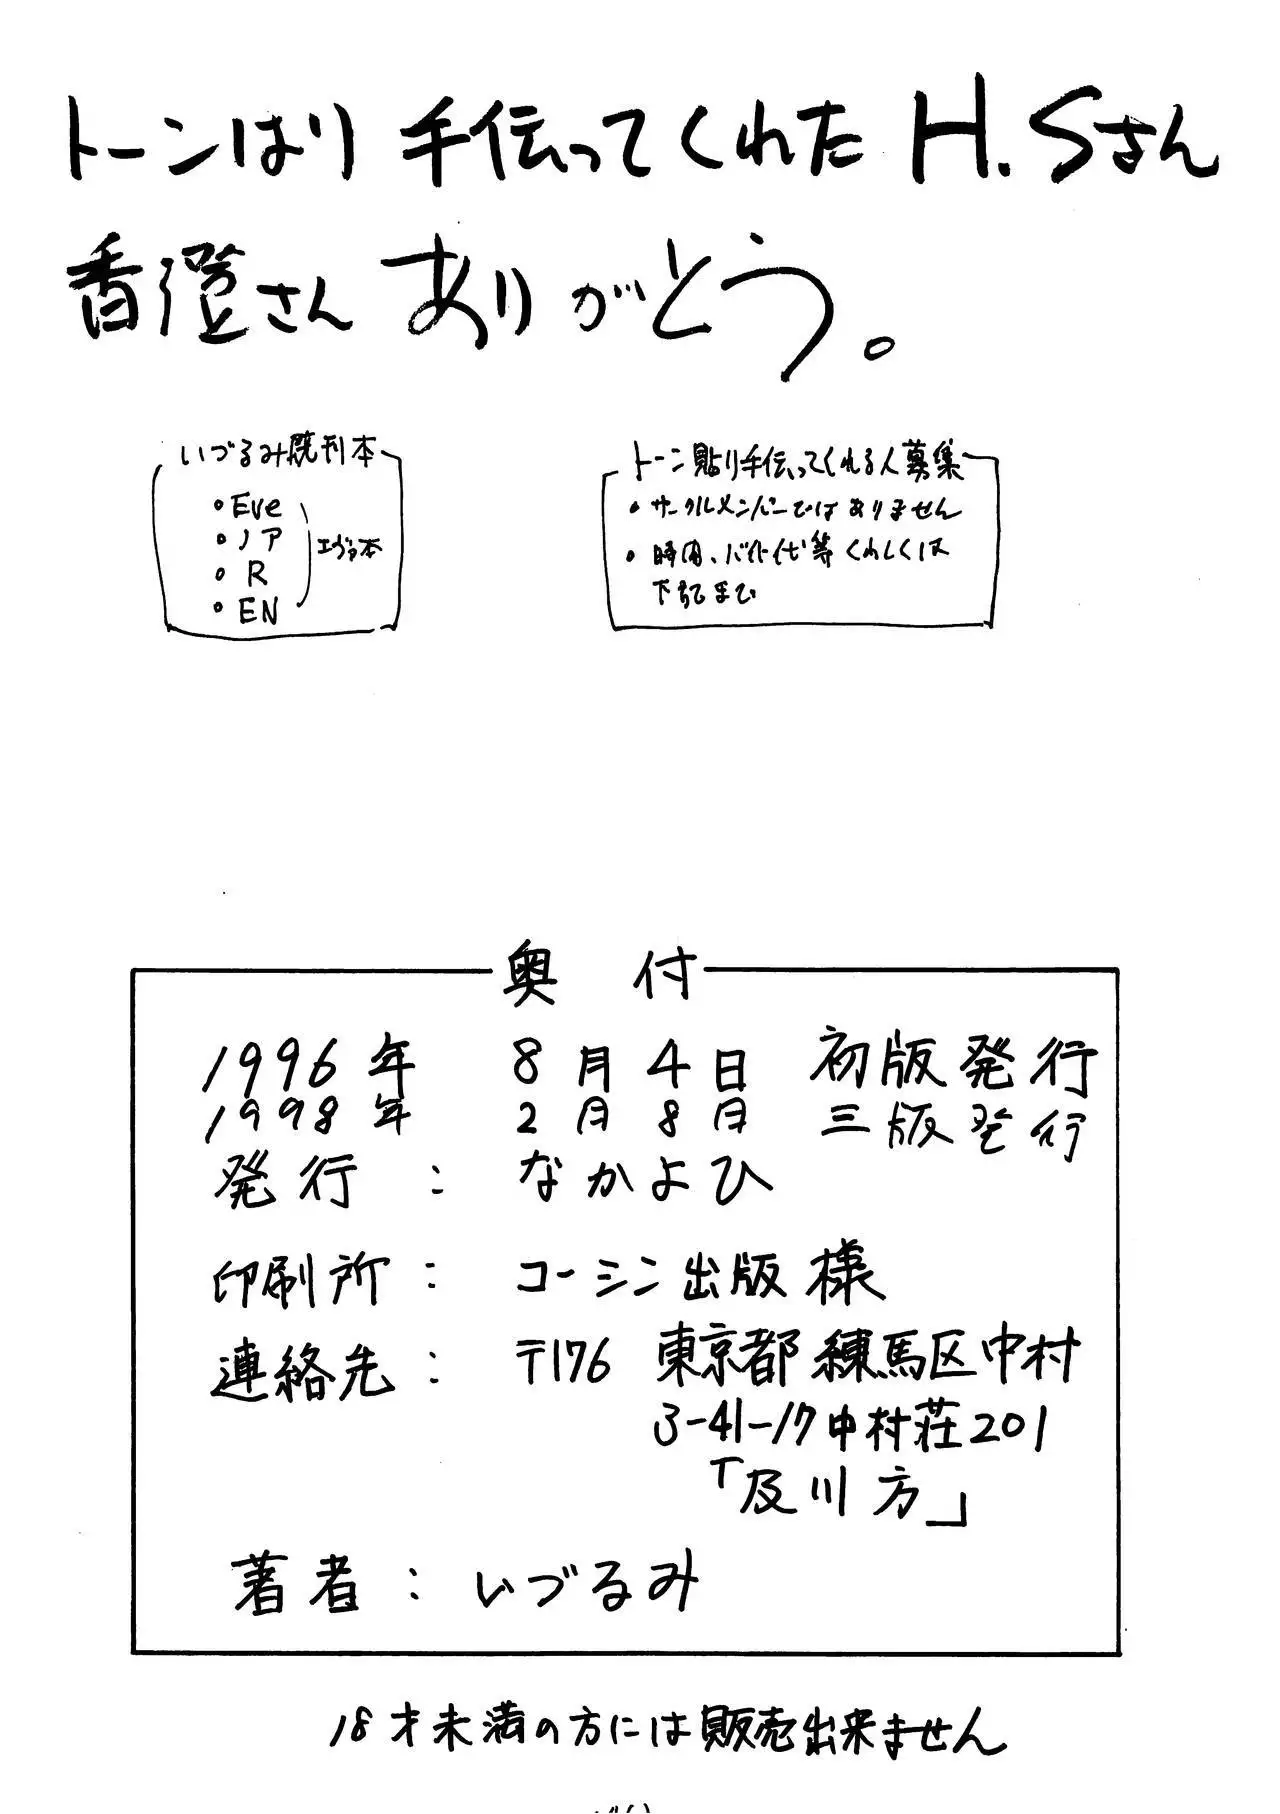 トーンはり 手伝ってくれた H.Sさん
香澄さん ありがとう。
いづるみ既刊本
・Eve
・ノア
・R
・EN
エヴァ本
トーン貼り手伝ってくれる人募集
・サークルメンバーではありません
・時間、バイト代等くわしくは
下記まで
奥付
1996年 8月4日 初版発行
1998年 2月8日 三版発行
発行 : なかよひ
印刷所 : コーシン出版様
連絡先 : 〒176 東京都練馬区中村
3-41-17中村荘201
「及川方」
著者 : いづるみ
18才未満の方には販売出来ません